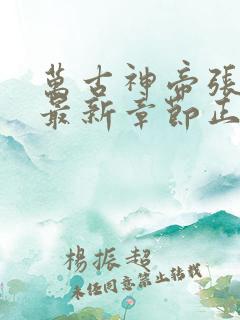 萬古神帝張
最新章節正
楊振超
未经同意禁止转载